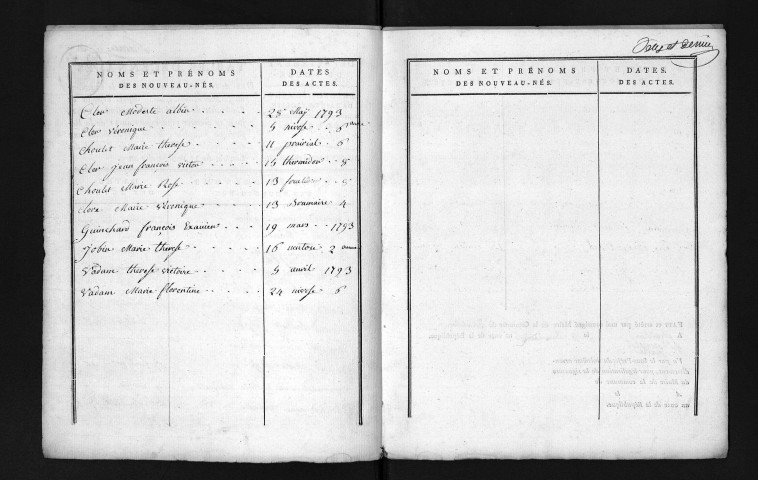 NOMS ET PRÉNOMS DES NOUVEAU-NÉS.
DATES DES ACTES.
Clerc Modeste albin 25 May 1793
Clerc véronique 5 nivose 6
Choulet Marie therese 11 prairial 6
Clerc jean francois victor 15 thermidor 5
Choulet Marie Rose 13
Clerc Marie véronique 13 Brumaire 4
Guinchard françois Exavier 19 mars 1793
Jobin Marie therese 16 ventose 2 année
Vadam therese victoire 5 avril 1793
Vadam Marie florentine 24 nivose 6
NOMS ET PRÉNOMS DES NOUVEAU-NÉS.
DATES. DES ACTES.